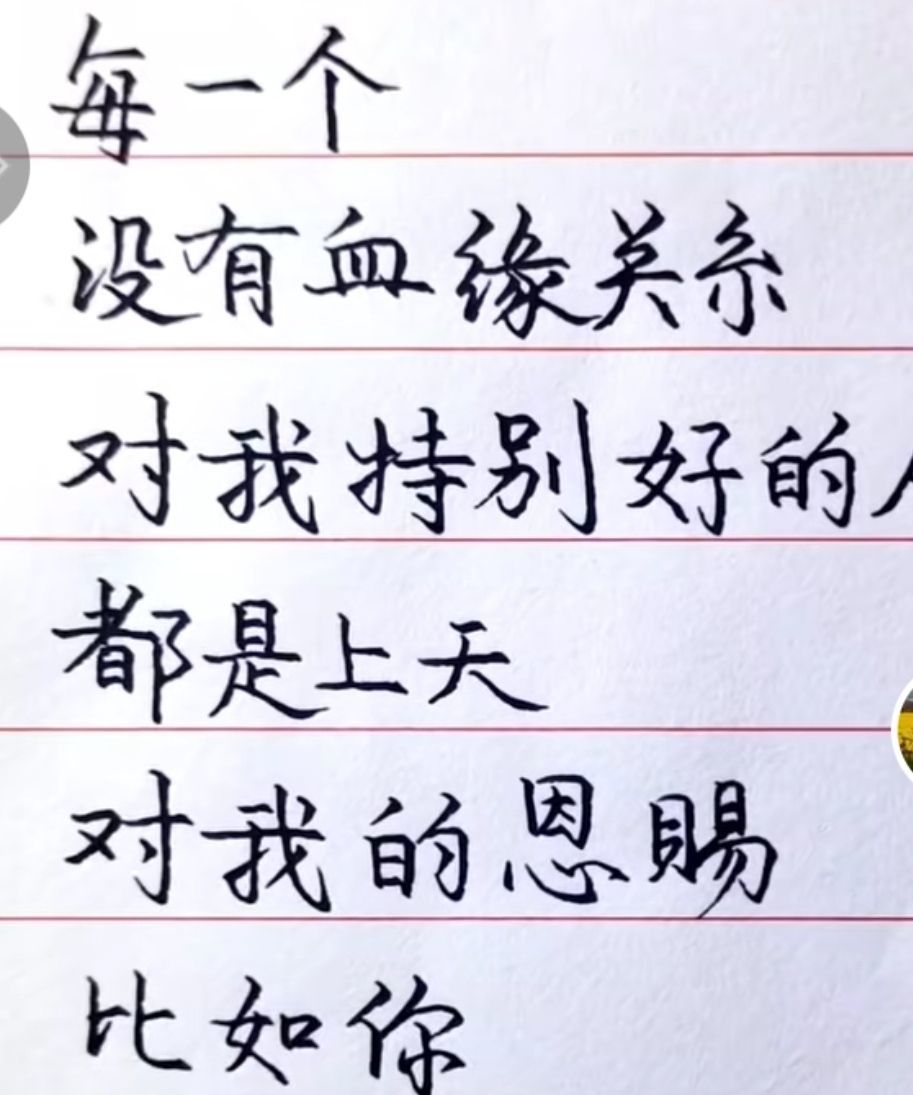 每一个
没有血缘关系
对我特别好的人
都是上天
对我的恩賜
比如你